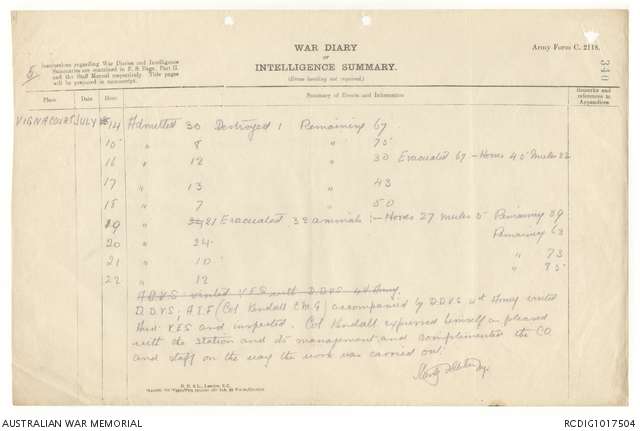 WAR DIARY
or
INTELLIGENCE SUMMARY.
(Erase heading not required.)
Army Form C. 2118.
Instructions regarding War Diaries and Intelligence
Summaries are contained in F. S. Regs., Part II.
and the Staff Manual respectively. Title pages
will be prepared in manuscript.
340
Place Date Hour Summary of Events and Information Remarks and references to Appendices
VIGNACOURT JULY 14 Admitted 30 Destroyed 1 Remaining 67
15 " 8 " 75
16 " 12 " 30 Evacuated 67 - Horses 45 Mules 22
17 " 13 " 43
18 " 7 " 50
19 " 21 Evacuated 32 animals :- Horses 27 mules 5 Remaining 39
20 " 24 Remaining 63
21 " 10 " 73
22 " 12 " 85
A.D.V.S. visited V.E.S with D.D.V.S 4th Army
D.D.V.S, A.I.F (Col Kendall C.M.G) accompanied by D.D.V.S 4th Army visited
this V.E.S and inspected. Col Kendall expressed himself as pleased
with the station and its management and complimented the CO
and staff on the way the work was carried out.
D. D. & L., London, E.C.
AUSTRALIAN WAR MEMORIAL
RCDIG1017504